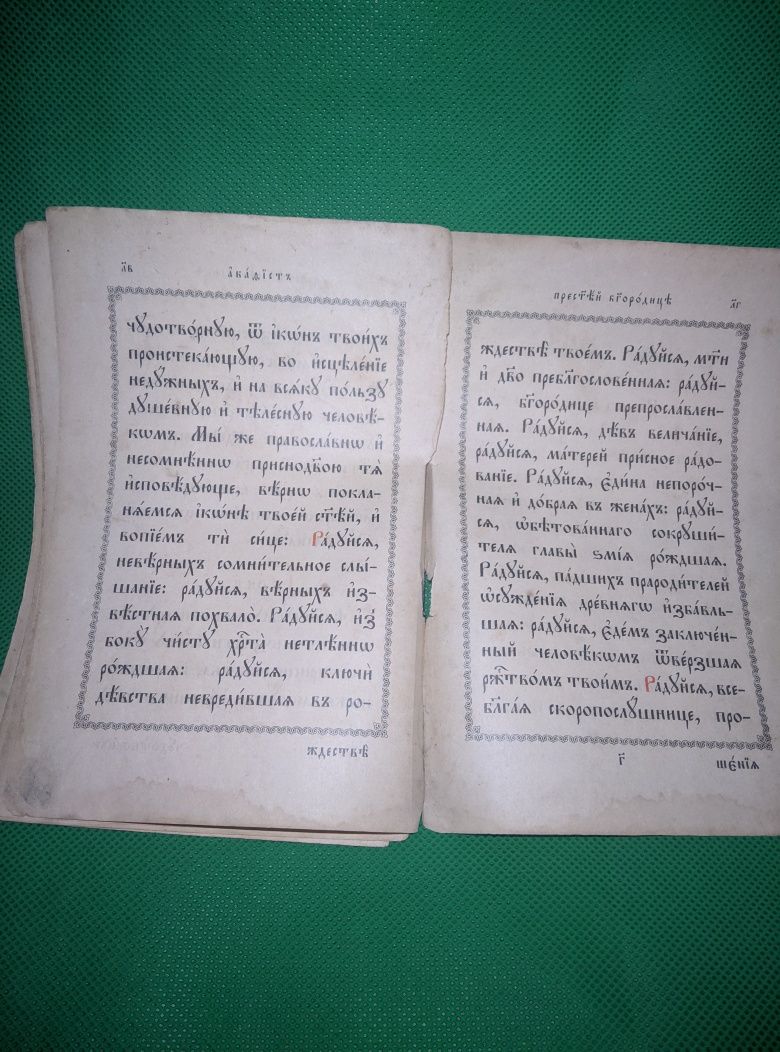 л҃в
а҆ка́ѳїстъ
чꙋдотво́рнꙋю, ѿ і҆кѡ́нъ твои́хъ
происте́ка́ющꙋю, во и҆сцѣле́нїе
недꙋ́жныхъ, и҆ на всѧ́кꙋ по́льзꙋ
дꙋше́внꙋю и҆ тѣле́снꙋю человѣ́-
кѡмъ. Мы́ же правосла́внѡ и҆
несомнѣ́ннѡ приснодв҃ою тѧ̀
и҆сповѣ́дꙋюще, вѣ́рнѡ покла-
нѧ́емсѧ і҆кѡ́нѣ твое́й ст҃ѣ́й, и҆
вопїе́мъ тѝ си́це: Ра́дꙋйсѧ,
невѣ́рныхъ сомни́тельное слы́-
шанїе: ра́дꙋйсѧ, вѣ́рныхъ и҆з-
вѣ́стнаѧ похвало̀. Ра́дꙋйсѧ, и҆з̾
бокꙋ̀ чи́стꙋ хрⷭ҇та̀ нетлѣ́ннѡ
ро́ждшаѧ: ра́дꙋйсѧ, ключи̑
дѣ́вства невреди́вшаѧ въ ро-
ждествѣ̀
прест҃ѣ́й бг҃оро́дицѣ
л҃г
ждествѣ̀ твое́мъ. Ра́дꙋйсѧ, мт҃и
и҆ дв҃о пребл҃гослове́ннаѧ: ра́дꙋй-
сѧ, бг҃оро́дице препросла́влен-
наѧ. Ра́дꙋйсѧ, дѣ́въ велича́нїе,
ра́дꙋйсѧ, ма́терей при́сное ра́до-
ванїе. Ра́дꙋйсѧ, є҆ди́на непоро́ч-
наѧ и҆ до́браѧ въ жена́хъ: ра́дꙋй-
сѧ, ѡ҆бѣтова́ннаго сокрꙋши́-
телѧ главы̀ ѕмі́ѧ ро́ждшаѧ.
Ра́дꙋйсѧ, па́дшихъ прароди́телей
ѡ҆сꙋжде́нїѧ дре́внѧгѡ и҆зба́вль-
шаѧ: ра́дꙋйсѧ, є҆де́мъ заключе́н-
ный человѣ́кѡмъ ѿве́рзшаѧ
ржⷭ҇тво́мъ твои́мъ. Ра́дꙋйсѧ, все-
бл҃га́ѧ скоропослꙋ́шнице, про-
г҃
ше́нїѧ